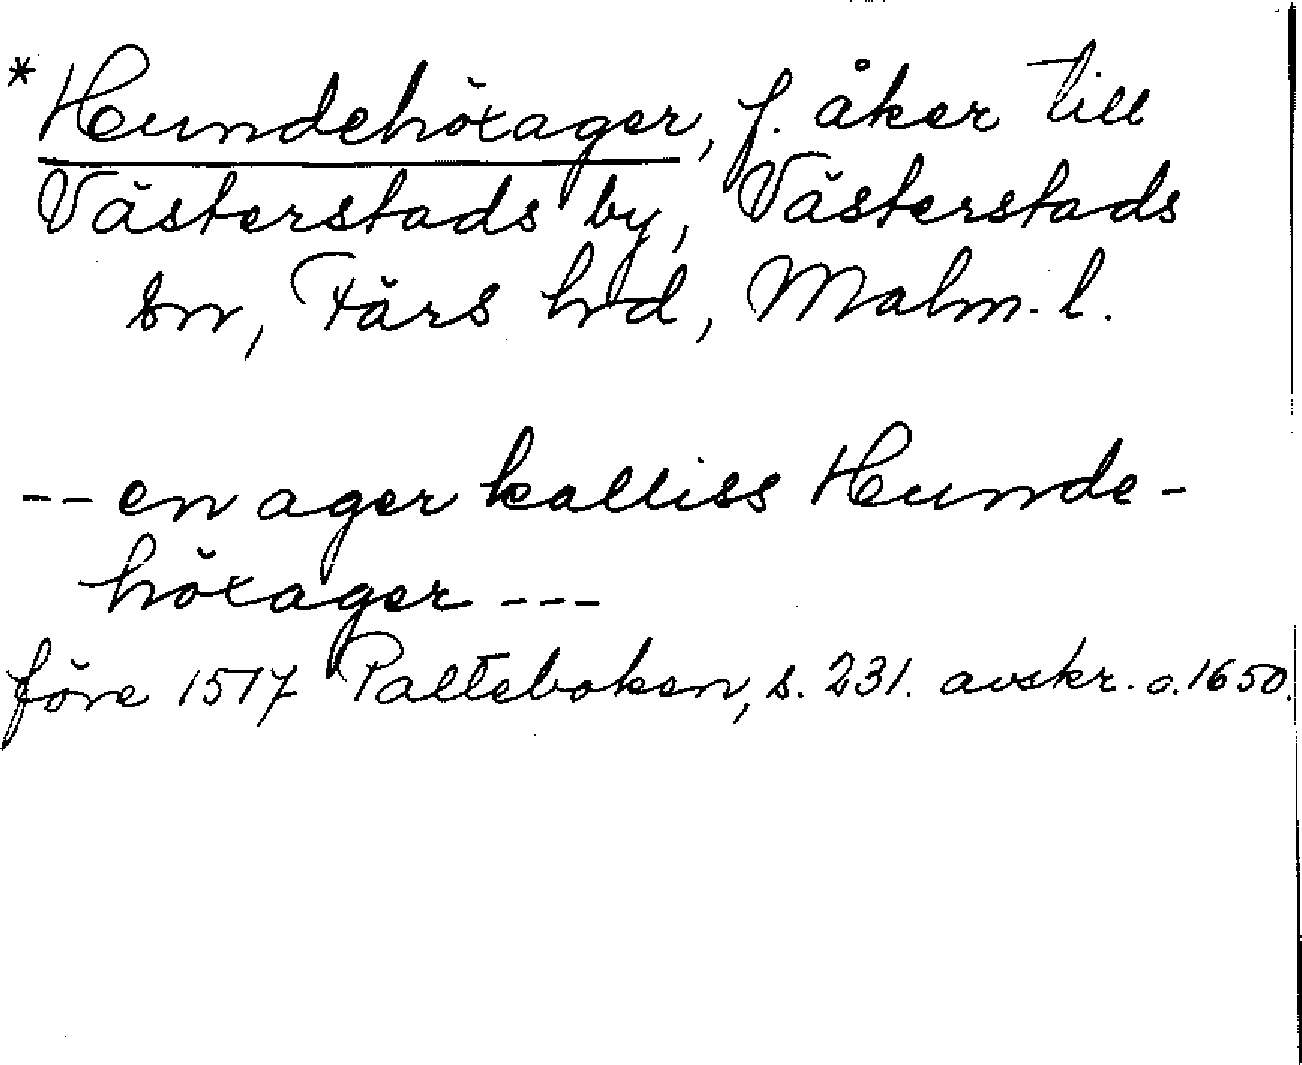 *Hundehöxager, f. åker till
Västerstads by, Västerstads
sn, Färs hrd, Malm. l.
-- en ager kalliss Hunde-
höxager ---
före 1517 Palteboken, s. 231. avskr. c. 1650.